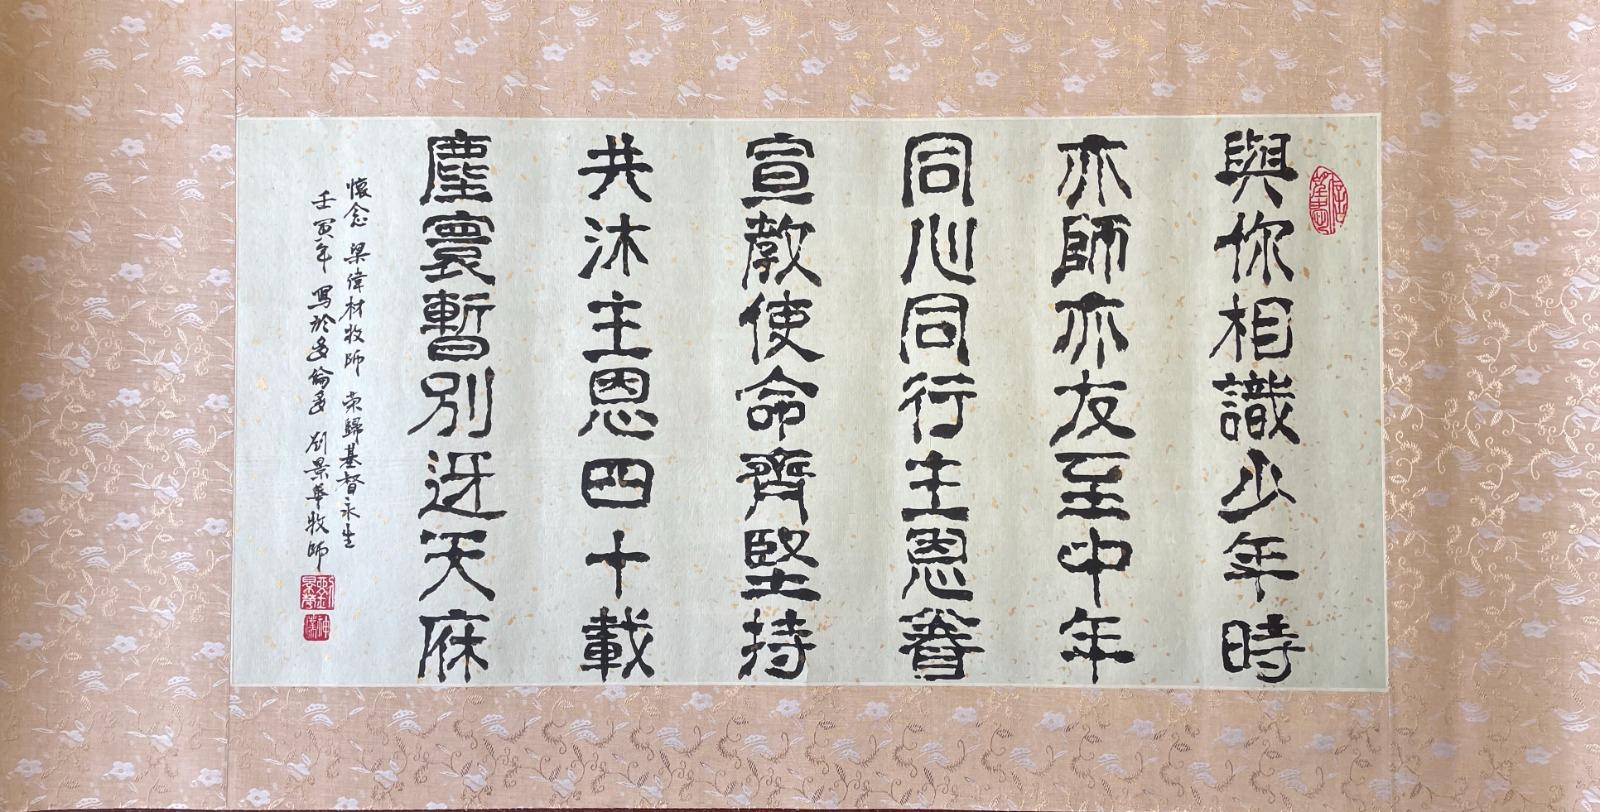 與你相識少年時
亦師亦友至中年
同心同行主恩眷
宣教使命齊堅持
共沐主恩四十載
塵寰暫別迓天庥
懷念 梁偉材牧師 榮歸基督永生
壬寅年 寫於多倫多 劉景華牧師